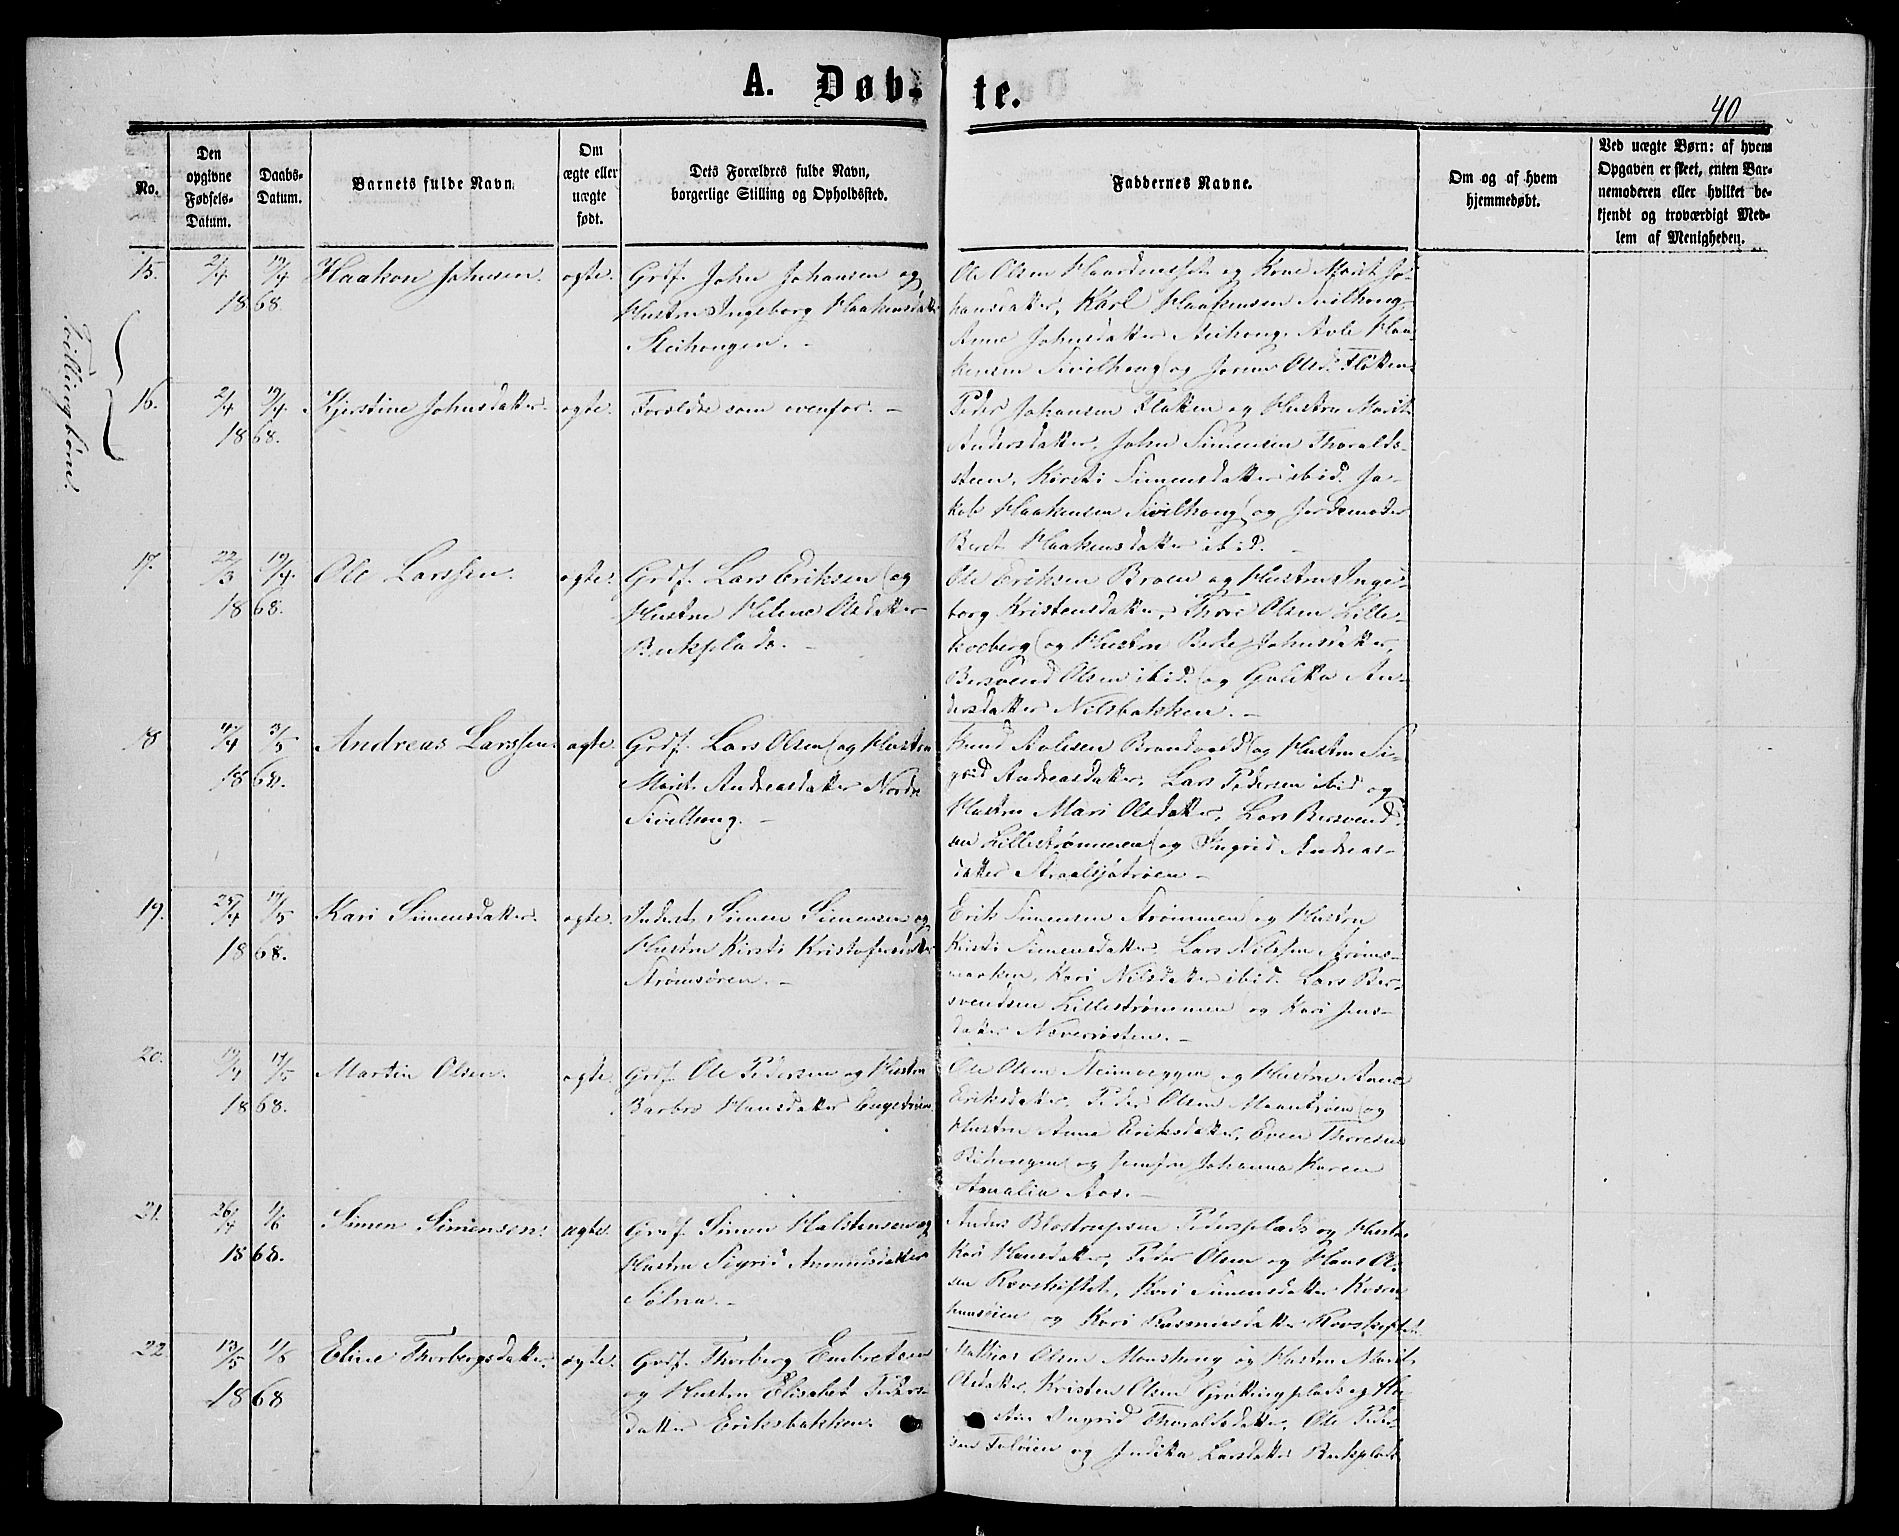 A. Døb-
te.
40
No.
Den
opgivne
Fødsels-
Datum.
Daabs-
Datum.
Barnets fulde Navn.
Om
ægte eller
uægte
født.
Dets Forældres fulde Navn,
borgerlige Stilling og Opholdssted.
Faddernes Navne.
Om og af hvem
hjemmedøbt.
Ved uægte Børn: af hvem
Opgaven er skeet, enten Bar-
nemoderen eller hvilket be-
kjendt og troværdigt Med-
lem af Menigheden.
Tvillingbørn.
15. 2/4 19/4 Haakon Johnsen. ægte. Grdf. John Johansen og
1868. Hustru Ingeborg Haakensdatter
Steihougen. –
Ole Olsen og Kone Marit Jo-
hansdatter, Karl Haakensen Sivilhoug,
Anne Johnsdatter Steihoug, Haa-
kensen Sivilhoug og Olsd. Fløtten
16. 2/4 19/4 Kjerstine Johnsdatter. ægte. Forældre som ovenfor. –
1868.
Peder Johansen Fløtten og Hustru Marit
Andersdatter, John Simensen Thoralds-
steen, Kirsti Simensdatter ibid. Ja-
kob Haakensen Sivilhoug og Jordemoder
Berit Haakensdatter ibid. –
17. 22/3 19/4 Ole Larssen. ægte. Grdf. Lars Eriksen og
1868. Hustru Helene Olsdatter
Bukplads. –
Ole Eriksen Broen og Hustru Inge-
borg Kristensdatter, Thore Olsen Lille-
koeberg og Hustru Berte Johnsdatter,
Bersvend Olsen ibid. og Golika An-
dersdatter Nilsbakken. –
18 4/4 3/5 Andreas Larssen. ægte. Grdf. Lars Olsen og Hustru
1868. Marit Andreasdatter Nordre
Sivilhoug. –
Knud Brandvold og Hustru Si-
grid Andreasdatter, Lars Pedersen ibid og
Hustru Mari Olsdatter, Lars Bersvend-
sen Lillestrømmen og Ingrid Andreas-
datter Straalsjøtrøen –
19. 25/4 17/5 Kari Simensdatter. ægte. Inderst Simen Simensen og
1868. Hustru Kirsti Kristofersdatter
Strømsøren. –
Erik Simensen Strømmen og Hustru
Kirsti Simensdatter, Lars Nilssen Strøms-
moeken, Kari Nilsdatter ibid. Lars Ber-
svendsen Lillestrømmen og Kari Jens-
datter Næverøsten. –
20. 19/4 17/5 Martin Olsen. ægte. Grdf. Ole Pedersen og Hustru
1868. Barbro Hansdatter Engetrøen.
Ole Olsen Steinveggen og Hustru Anne
Eriksdatter, Peder Olsen Maantrøen og
Hustru Anne Eriksdatter, Even Thoresen
og Jomfru Johanna Karen
Amalia Aas. –
21. 26/4 1/6 Simen Simensen. ægte. Grdf. Simen Halstensen og
1868. Hustru Sigrid Ammundsdatter
Sølna. –
Anders Blostrupsen Pedersplads og Hustru
Kari Hansdatter, Peder Olsen og Hans Ol-
sen Rovskiftet, Kari Simensdatter
og Kari Rasmusdatter Rovskiftet
22 13/5 1/6 Eline Thorbergsdatter. ægte. Grdf. Thorberg Embretsen
1868 og Hustru Elisabet Peders-
datter Eriksbakken.
Mathias Olsen Monshoug og Hustru Marit
Olsdatter, Kristen Olsen Grøttingplads og Hu-
stru Ingrid Thoraldsdatter, Ole Peder-
sen Toløien og Indika Larsdatter Bukplads